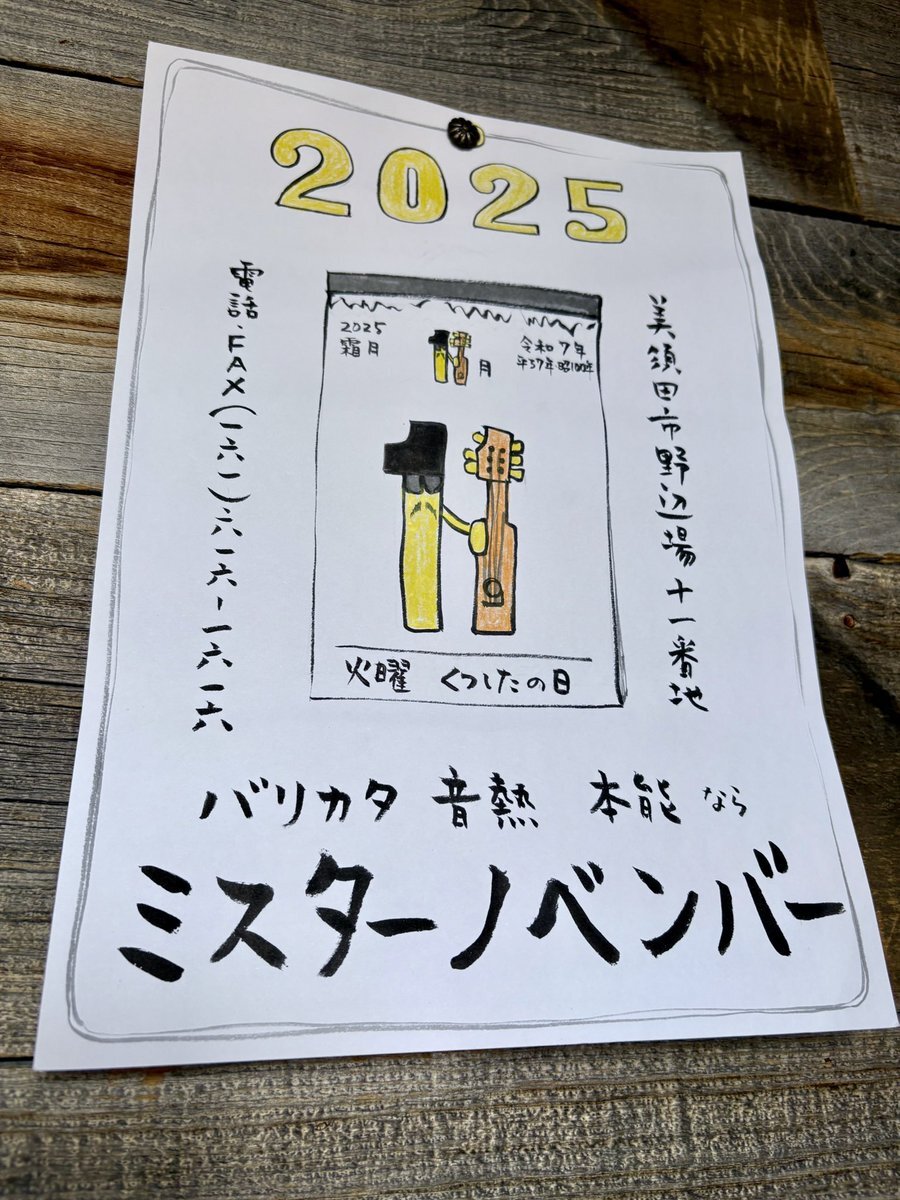 2025
美須田市野辺場十一番地
2025
霜月
月
令和7年
平37年 昭100年
火曜 くつしたの日
電話・FAX(一六一)六一六一一六一六
バリカタ 音熱 本能 なら
ミスターノベンバー